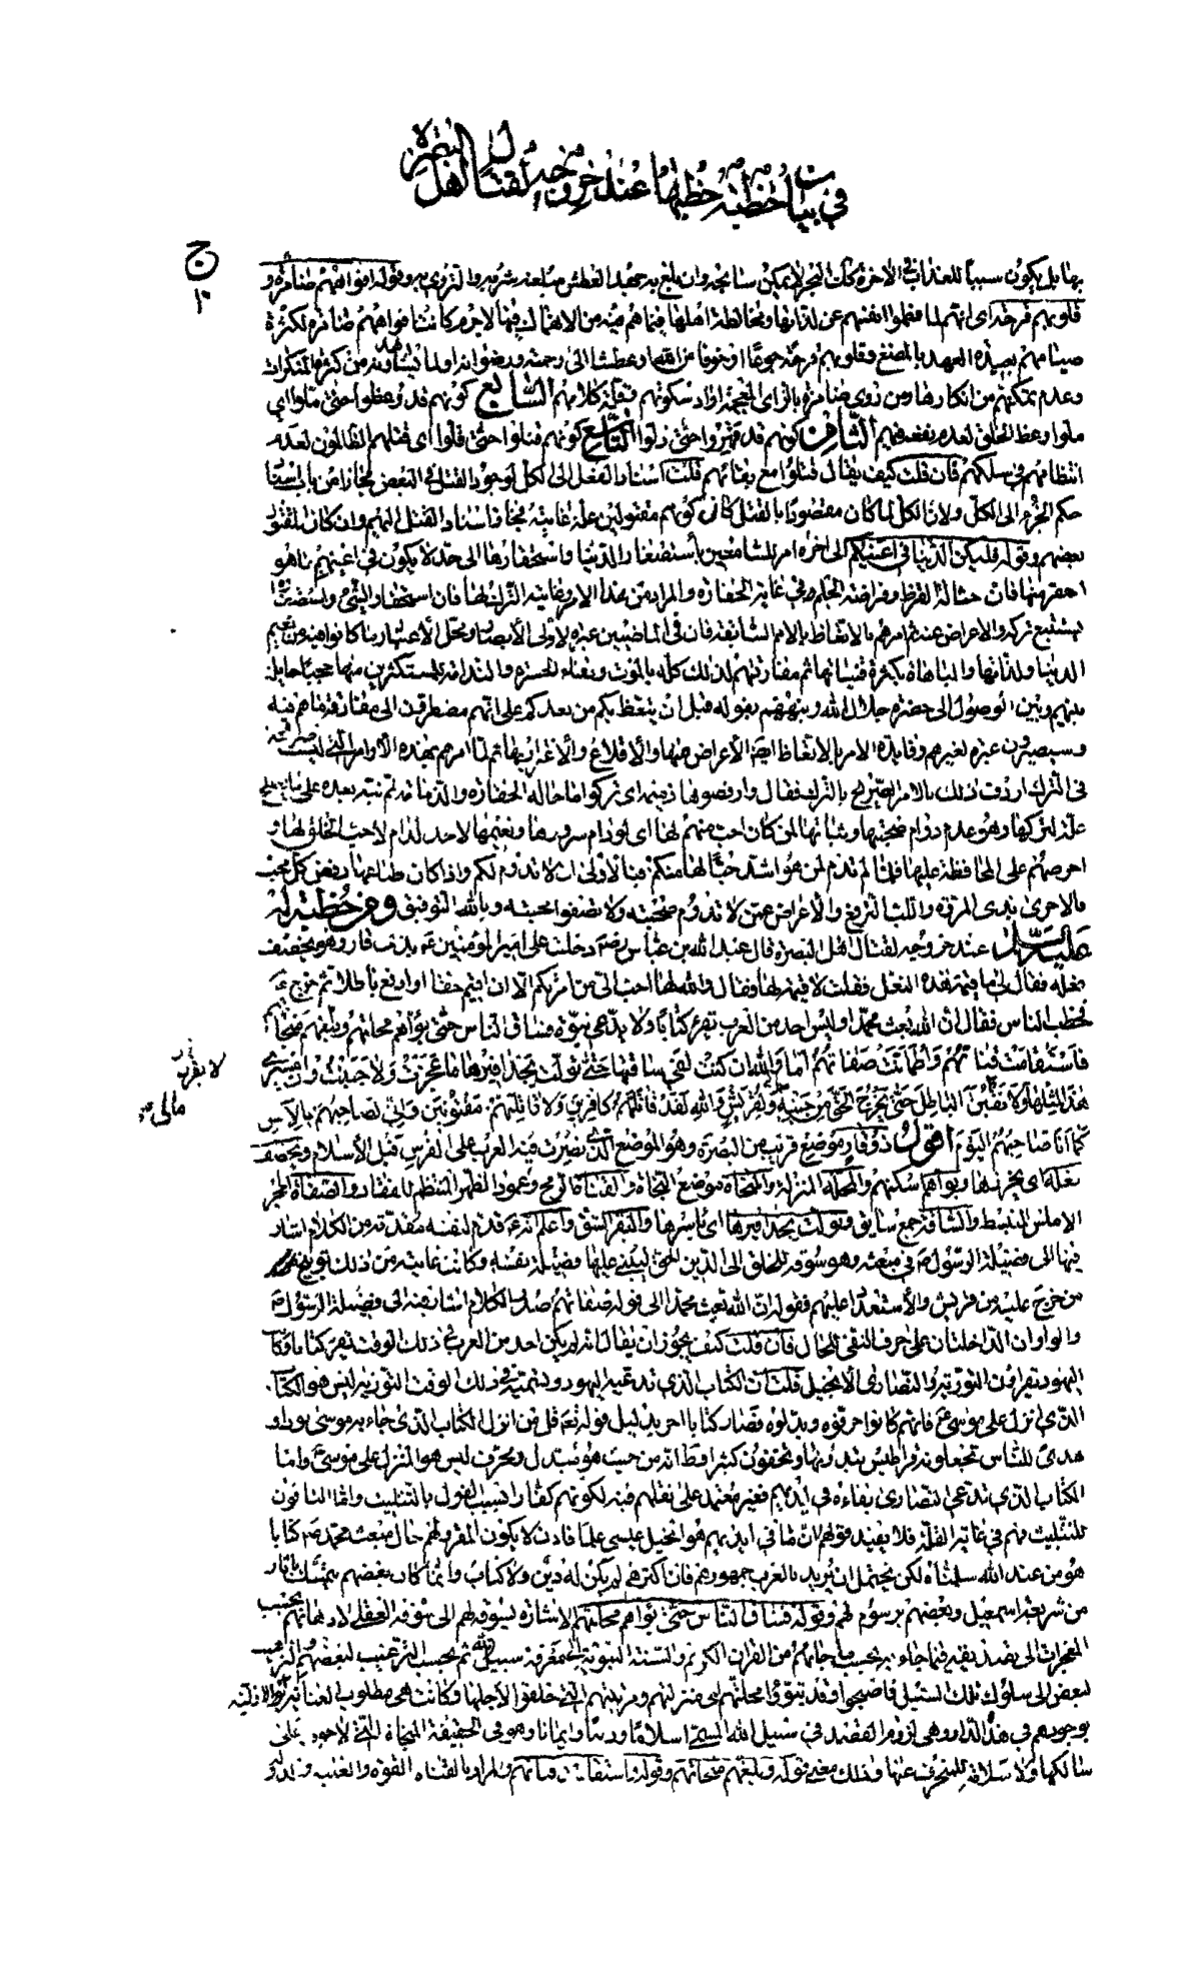 في بيان خطبة خطبها عند خروجه لقتال اهل البصرة
ج ١
بها بل يكون سببا للعذاب في الآخرة كان البحر لا يمكن سابحه وان بلغ به جهد العطش مبلغه شربه ولا التروى به وقوله افواههم ضامزة و
قلوبهم قرحة اى انهم لما فطموا انفسهم عن لذاتها ومخالطة اهلها فيما هم فيه من الانهماك فيها لاجرم كانت افواههم ضامزة لكثرة
صيامهم بعيدة العهد بالمضغ وقلوبهم قرحة جوعا او خوفا من الله او عطشا الى رحمته ورضوانه او لما يشاهدونه من كثرة المنكرات
وعدم تمكنهم من انكارها ومن روى ضامزة بالزاى المعجمة اراد سكوتهم وقلة كلامهم السابع كونهم قد وعظوا حتى ملوا اى
ملوا وعظ الخلق لعدم نفعه فيهم الثامن كونهم قد قهروا حتى ذلوا التاسع كونهم قتلوا حتى قلوا اى قتلهم الظالمون لعدم
انتظامهم في سلكهم فان قلت كيف يقال قتلوا مع بقائهم قلت اسناد الفعل الى الكل لوجود القتل في البعض مجازا من باب اسناد
حكم الجزء الى الكل ولان الكل لما كان مقصودا بالقتل كان كونهم مقتولين علة غائية فجاز اسناد القتل اليهم وان كان المقتول
بعضهم وقوله فليكن الدنيا في اعينكم الى اخره امر للسامعين باستصغار الدنيا واستحقارها الى حد لا يكون في اعينهم ما هو
احقر منها فان حثالة القرظ وقراضة الجلم في غاية الحقارة والمراد من هذا الامر وغايته الترك لها فان استحقار الشئ واستصغاره
يستتبع تركه والاعراض عنه ثم امرهم بالاتعاظ بالامم السابقة فان في الماضين عبرة لاولى الابصار ومحل الاعتبار ما كانوا فيه من نعيم
الدنيا ولذاتها والمباهاة بكثرة قنياتها ثم مفارقتهم لذلك كله بالموت وبقاء الحسرة والندامة للمستكثرين منها حجبا حايلة
بينهم وبين الوصول الى حضرة جلال الله ونبههم بقوله قبل ان يتعظ بكم من بعدكم على انهم مضطرون الى مفارقة ما هم فيه
وسيصيرون عبرة لغيرهم وفايدة الامر بالاتعاظ ايضا الاعراض عنها والاقلاع والاغترار بها ثم لما امرهم بهذه الاوامر التي ليست صريحة
في الترك اردف ذلك بالامر الصريح بالترك فقال وارفضوها ذميمة اى اتركوا ما حاله الحقارة والذمامة ثم نبه بعده على ما يصلح
علة لتركها وهو عدم دوام صحبتها وثباتها لمن كان احب منهم لها اى لو دام سرورها ونعيمها لاحد لدام لاحب الخلق لها و
احرصهم على المحافظة عليها فلما لم تدم لمن هو اشد حبا لها منكم فبالاولى ان لا تدوم لكم واذا كان طباعها رفض كل محب
فالاحرى بذى المروة واللب الترفع والاعراض عمن لا تدوم صحبته ولا تصفوا محبته وبالله التوفيق ومن خطبة له
عليه السلام عند خروجه لقتال اهل البصرة قال عبد الله بن عباس رض دخلت على امير المؤمنين ع بذى قار وهو يخصف
نعله فقال لى ما قيمة هذه النعل فقلت لا قيمة لها فقال والله لهى احب الى من امرتكم الا ان اقيم حقا او ادفع باطلا ثم خرج ع
فخطب الناس فقال ان الله بعث محمدا وليس احد من العرب يقرء كتابا ولا يدعى نبوة فساق الناس حتى بوأهم محلتهم وبلغهم منجاتهم
فاستقامت قناتهم واطمأنت صفاتهم اما والله ان كنت لفى ساقتها حتى تولت بحذافيرها ما عجزت ولا جبنت وان مسيرى
هذا لمثلها ولانقبن الباطل حتى يخرج الحق من جنبه مالى ولقريش والله لقد قاتلتهم كافرين ولاقاتلنهم مفتونين وانى لصاحبهم بالامس
كما انا صاحبهم اليوم اقول ذو قار موضع قريب من البصرة وهو الموضع الذى نصرت فيه العرب على الفرس قبل الاسلام ويخصف
نعله اى يخرزها وبوأهم اسكنهم والمحلة المنزلة والمنجاة موضع النجاة والقناة الرمح وعمود الظهر المنتظم للفقار والصفاة الحجر
الاملس المنبسط والساقة جمع سايق وتولت بحذافيرها اى باسرها والبقر الشق واعلم انه ع قدم لنفسه مقدمة من الكلام اشار
فيها الى فضيلة الرسول ص في مبعثه وهو سوقه للخلق الى الدين الحق ليبنى عليها فضيلة نفسه وكانت غايته من ذلك توبيخ
من خرج عليه من قريش والاستعداد عليهم فقوله ان الله بعث محمدا الى قوله صفاتهم صدر الكلام اشار فيه الى فضيلة الرسول ص
والواو ان الداخلتان على حرف النفي للحال فان قلت كيف يجوز ان يقال انه لم يكن احد من العرب في ذلك الوقت يقرء كتابا وكان
اليهود يقرؤن التورية والنصارى الانجيل قلت ان الكتاب الذى تدعيه اليهود وتسميه في ذلك الوقت التورية ليس هو الكتاب
الذى انزل على موسى ع فانهم كانوا حرفوه وبدلوه فصار كتابا اخر بدليل قوله تع قل من انزل الكتاب الذى جاء به موسى نورا و
هدى للناس تجعلونه قراطيس تبدونها وتخفون كثيرا وظ انه من حيث هو مبدل ومحرف ليس هو المنزل على موسى ع واما
الكتاب الذى تدعى النصارى بقاءه في ايديهم فغير معتمد على نقلهم فيه لكونهم كفارا بسبب القول بالتثليث واما النافون
للتثليث منهم في غاية القلة فلا يفيد قولهم ان ما في ايديهم هو انجيل عيسى علما فاذن لا يكون المقرو لهم حال مبعث محمد ص كتابا
هو من عند الله سلمناه لكن يحتمل ان يريد بالعرب جمهورهم فان اكثرهم لم يكن له دين ولا كتاب وانما كان بعضهم يتمسك باثار
من شريعة اسمعيل وبعضهم برسوم لهم وقوله فساق الناس حتى بوأهم محلتهم الاشارة لسوقه لهم الى سوقه العقلى لاذهانهم بحسب
المعجزات الى تصديقه فيما جاء به بحسب ما جاءهم من القران الكريم والسنة النبوية الى معرفة سبيل الله ثم بحسب الترغيب لبعضهم والترهيب
لبعض الى سلوك تلك السبيل فاصبحوا وقد تبوؤا محلتهم اى منزلتهم ومرتبتهم التى خلقوا لاجلها وكانت هى مطلوب العناية الازلية
بوجودهم في هذا الدار وهى لزوم القصد في سبيل الله المسمى اسلاما ودينا وايمانا وهو في الحقيقة المنجاة التى لا خوف على
سالكها ولا سلامة للمنحرف عنها وذلك معنى قوله وبلغهم منجاتهم وقوله واستقامت قناتهم والمراد بالقناة القوة والغلبة والدولة